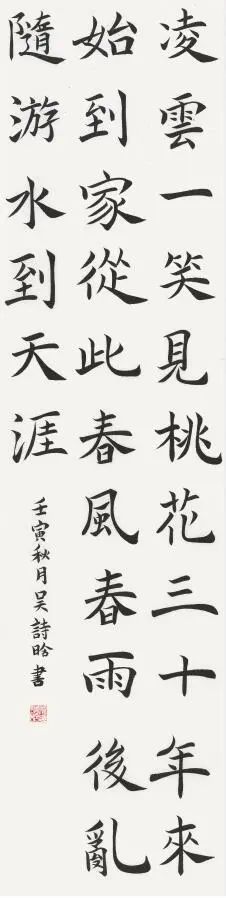 凌雲一笑見桃花三十年來
始到家從此春風春雨後亂
隨游水到天涯
壬寅秋月吴詩晗書